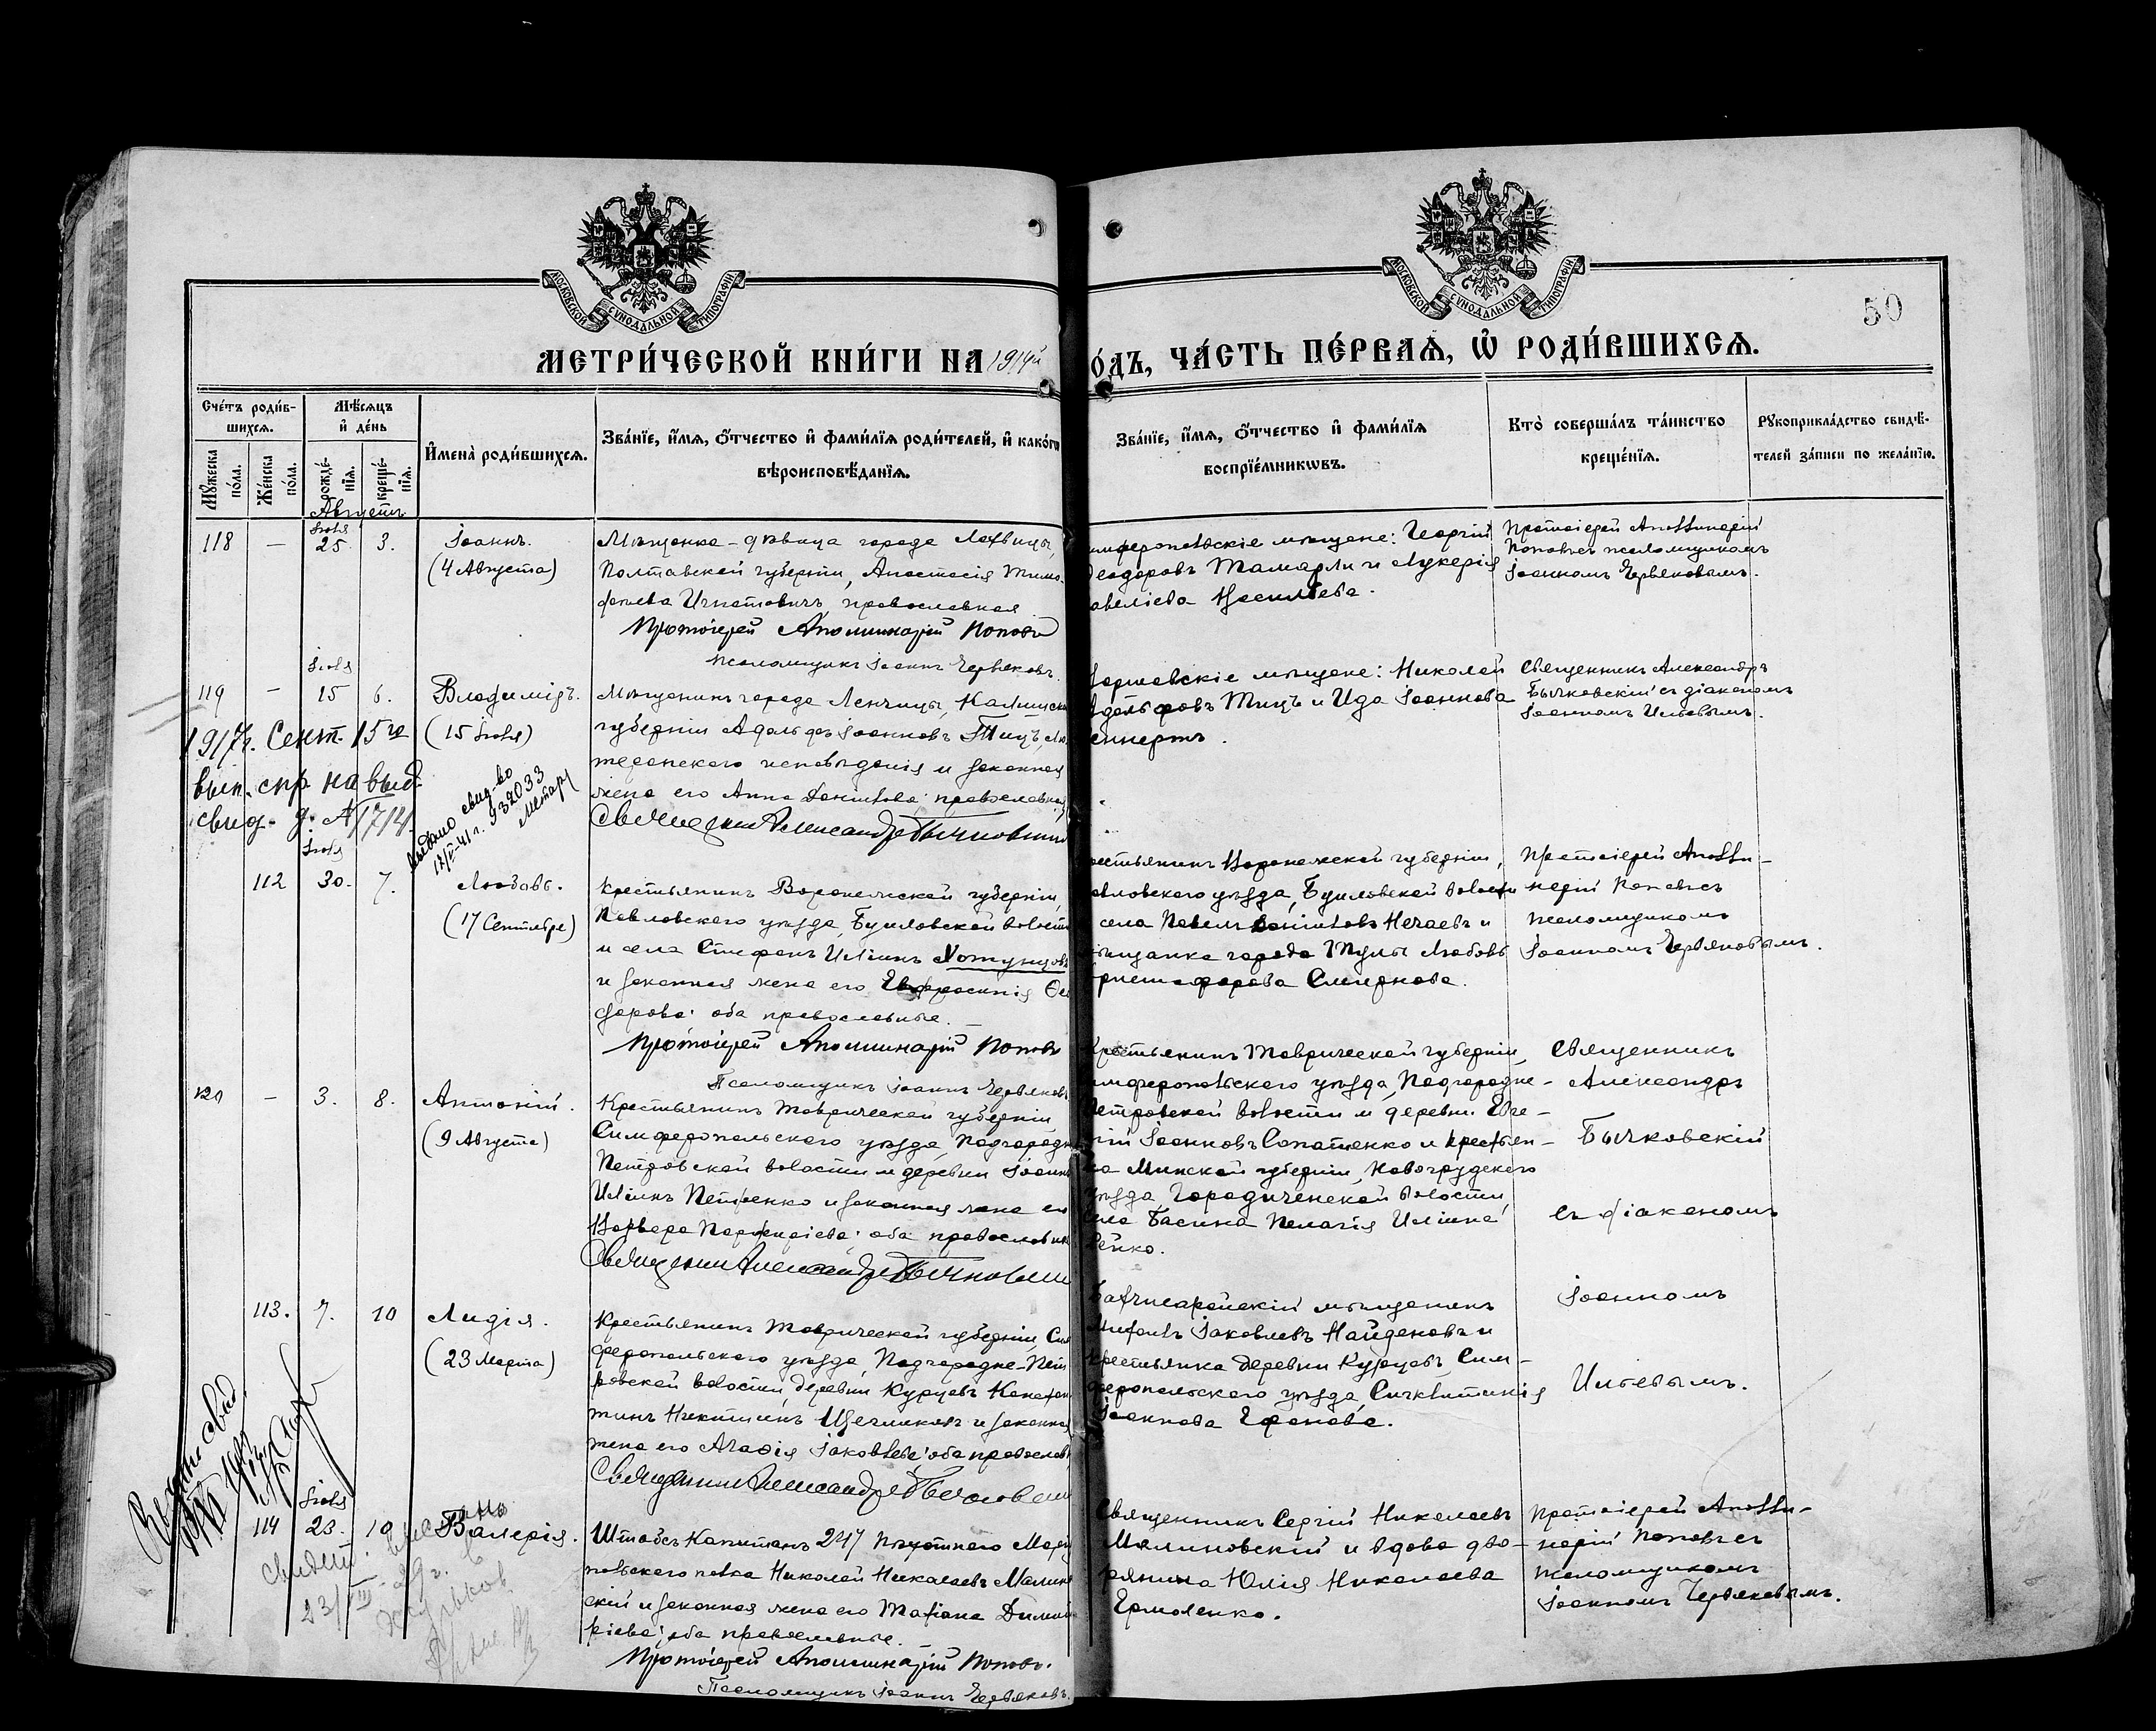 МОСКОВСКОЙ СѴНОДАЛЬНОЙ ТИПОГРАФІИ
МОСКОВСКОЙ СѴНОДАЛЬНОЙ ТИПОГРАФІИ
50
МЕТРИ́ЧЕСКОЙ КНИ́ГИ НА 1914й
О́ДЪ, ЧА́СТЬ ПЕ́РВАѦ, Ѡ҆ РОДИ́ВШИХСѦ.
Сче́тъ роди́в-
шихсѧ.
Мѣ́сѧцъ
и҆ де́нь
И҆мена̀ роди́вшихсѧ.
Зва́нїе, и҆́мѧ, ѻ҆́тчество и҆ фами́лїѧ роди́телей, и҆ како́гѡ
вѣроисповѣ́данїѧ.
Мꙋ́жеска
по́ла.
Же́нска
по́ла.
рожде́-
нїѧ.
креще́-
нїѧ.
Зва́нїе, и҆́мѧ, ѻ҆́тчество и҆ фами́лїѧ
воспрїе́мникѡвъ.
Кто̀ соверша́лъ та́инство
креще́нїѧ.
Рꙋкоприкла́дство свидѣ́-
телей за́писи по жела́нїю.
Августъ
Іюля
118 — 25. 3. Іоаннъ.
(4 Августа)
Мѣщанка-дѣвица города Лохвицы,
Полтавской губерніи, Анастасія Тимо-
феева Игнатовичъ, православная
Протоіерей Аполлинарій Поповъ
Псаломщикъ Іоаннъ Червяковъ.
имферопольскіе мѣщане: Георгій
еодоровъ Тамарли и Лукерія
авеліева
Протоіерей Аполлинарій
Поповъ съ псаломщикомъ
Іоанномъ Червяковымъ.
Іюля
119 — 15 6. Владиміръ.
(15 Іюля)
Мѣщанинъ города Ленчицы, Калишск
губерніи Адольфъ Іоанновъ Тицъ, лю
теранскаго исповѣданія и законная
жена его Анна Даніилова православная
Священникъ Александръ Бычковскій
мѣщане: Николай
Адольфовъ Тицъ и Ида Іоаннова
Священникъ Александръ
Бычковскій съ діакономъ
Іоанномъ Ильевымъ.
1917г. Сент. 15го
вып. спр на выд.
свид. д. № 1714.
Выдано свид-во
932033
Іюля
112 30. 7. Любовь.
(17 Сентября)
Крестьянинъ Воронежской губерніи,
Павловскаго уѣзда, Буйловской волости
и села Стефанъ Иліинъ Хотунцовъ
и законная жена его Евфросинія Ѳео
дорова: оба православные.
Протоіерей Аполлинарій Поповъ
Псаломщикъ Іоаннъ Червяковъ
рестьянинъ Воронежской губерніи,
авловскаго уѣзда, Буйловской волости
села Павелъ Даніиловъ Нечаевъ и
ѣщанка города Тулы Любовь
ристофорова Смирнова.
Протоіерей Аполли-
нарій Поповъ съ
псаломщикомъ
Іоанномъ Червяковымъ.
120 — 3. 8. Антоній.
(9 Августа)
Крестьянинъ Таврической губерніи
Симферопольскаго уѣзда, Подгородне
Петровской волости и деревни Іоаннъ
Иліинъ Петренко и законная жена его
Варвара Порфиріева: оба православные
Священникъ Александръ Бычковскій
Крестьянинъ Таврической губерніи,
имферопольскаго уѣзда, Подгородне-
Петровской волости и деревни Евге-
ній Іоанновъ Сопатенко и крестьян-
ка Минской губерніи, Новогрудскаго
уѣзда Городиченской волости
села Басина Пелагія Иліина
Священникъ
Александръ
Бычковскій
съ діакономъ
Іоанномъ
Ильевымъ.
113. 7. 10 Лидія.
(23 Марта)
Крестьянинъ Таврической губерніи, Сим
феропольскаго уѣзда, Подгородне-Пет
ровской волости деревни Курцевъ Констан
тинъ Никитинъ и законная
жена его Агафія Іаковлева: оба православн
Священникъ Александръ Бычковскій
Бахчисарайскій мѣщанинъ
Іаковлевъ Найденовъ и
крестьянка деревни Курцевъ, Сим-
феропольскаго уѣзда, Синклитикія
Іоаннова
Іюля
114 23. 10 Валерія.
Штабсъ Капитанъ 247 пѣхотнаго Маріу
польскаго полка Николай Николаевъ Малинов
скій и законная жена его Татіана Димит
ріева; оба православные.
Протоіерей Аполлинарій Поповъ.
Псаломщикъ Іоаннъ Червяковъ.
Священникъ Сергій Николаевъ
Малиновскій и вдова дво-
рянина Юлія Николаева
Ермоленко.
Протоіерей Аполли-
нарій Поповъ съ
псаломщикомъ
Іоанномъ Червяковымъ.